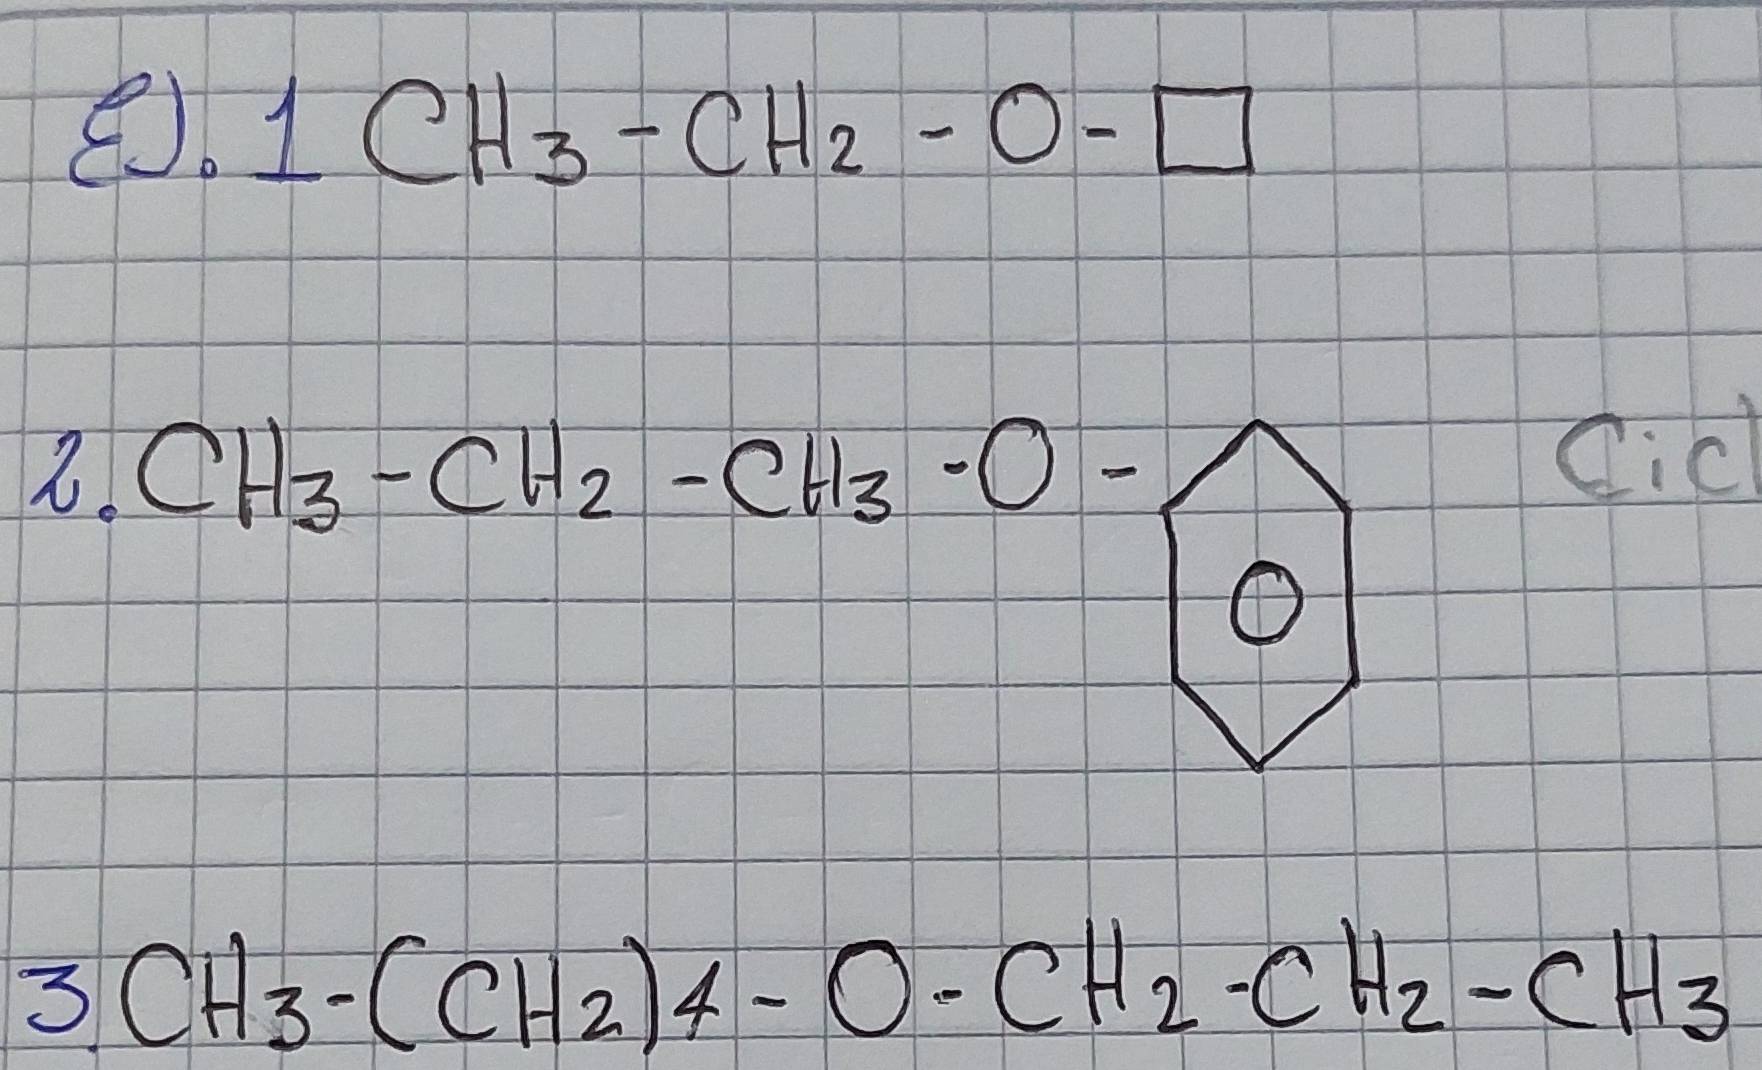 EJ. 1 CH3 - CH2 - O - □
2. CH3 - CH2 - CH3 - O - Cicl
O
3. CH3 - (CH2)4 - O - CH2 - CH2 - CH3